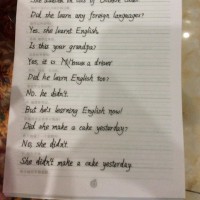 Did she learn any foreign languages?
Yes, she learnt English.
Is this your grandpa?
Yes, it is. M/bwas a driver
Did he learn English too?
No. he didn't.
But he's learning English now!
Did she make a cake yesterday?
No, she didn't.
She didn't make a cake yesterday.